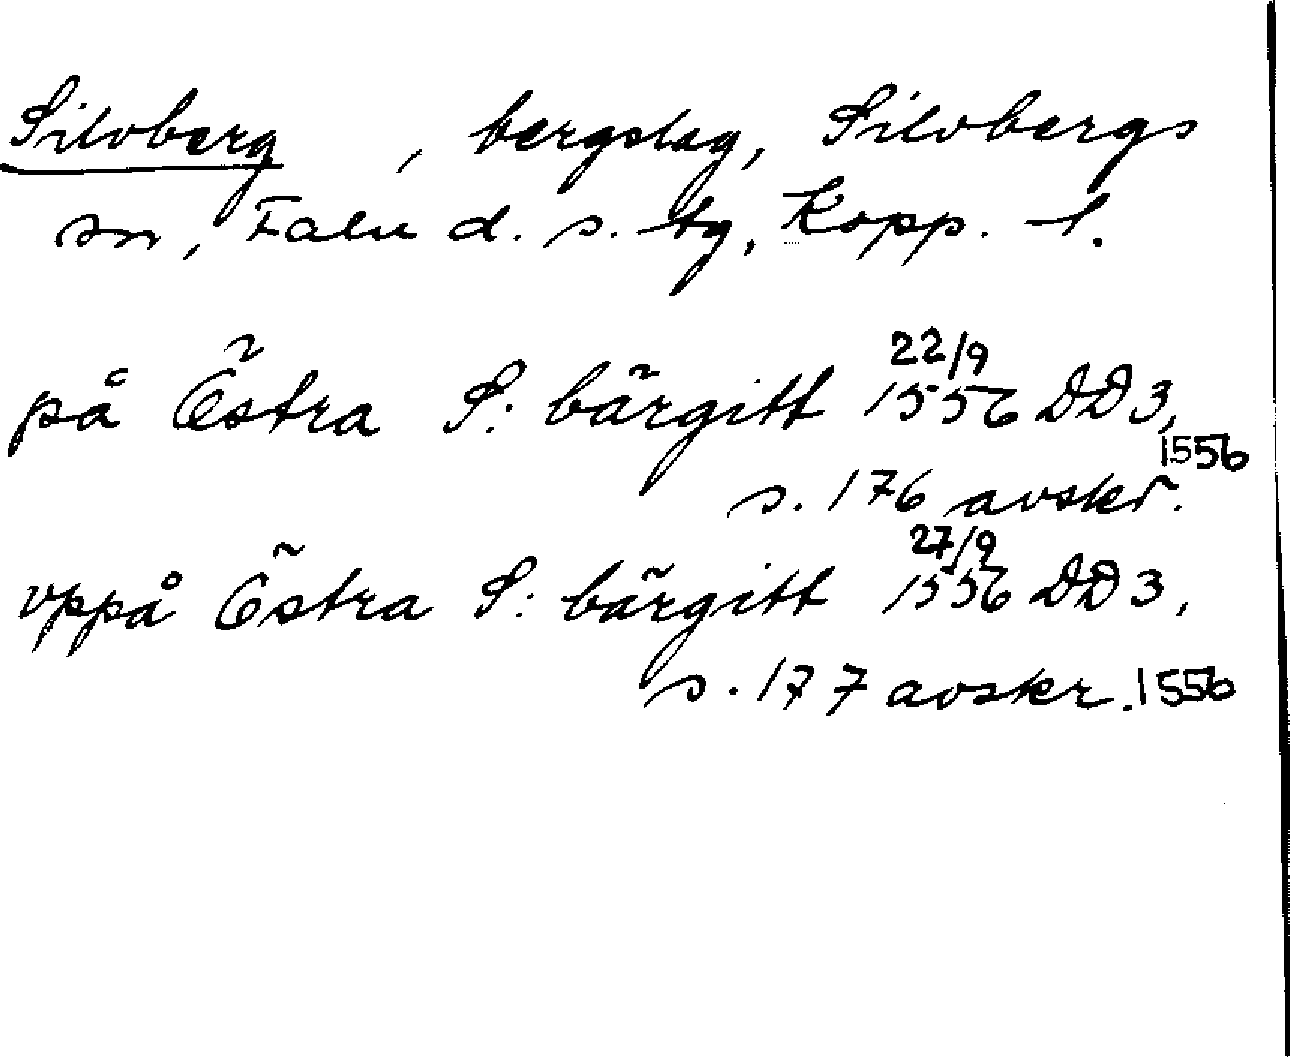 Silvberg , bergslag, Silvbergs
sn, Falu d. s. tg, Kopp. l.
på Östra S: bärgitt 22/9 1556 DD 3,
s. 176 avskr. 1556
vppå Östra S: bärgitt 27/9 1556 DD 3,
s. 177 avskr. 1556